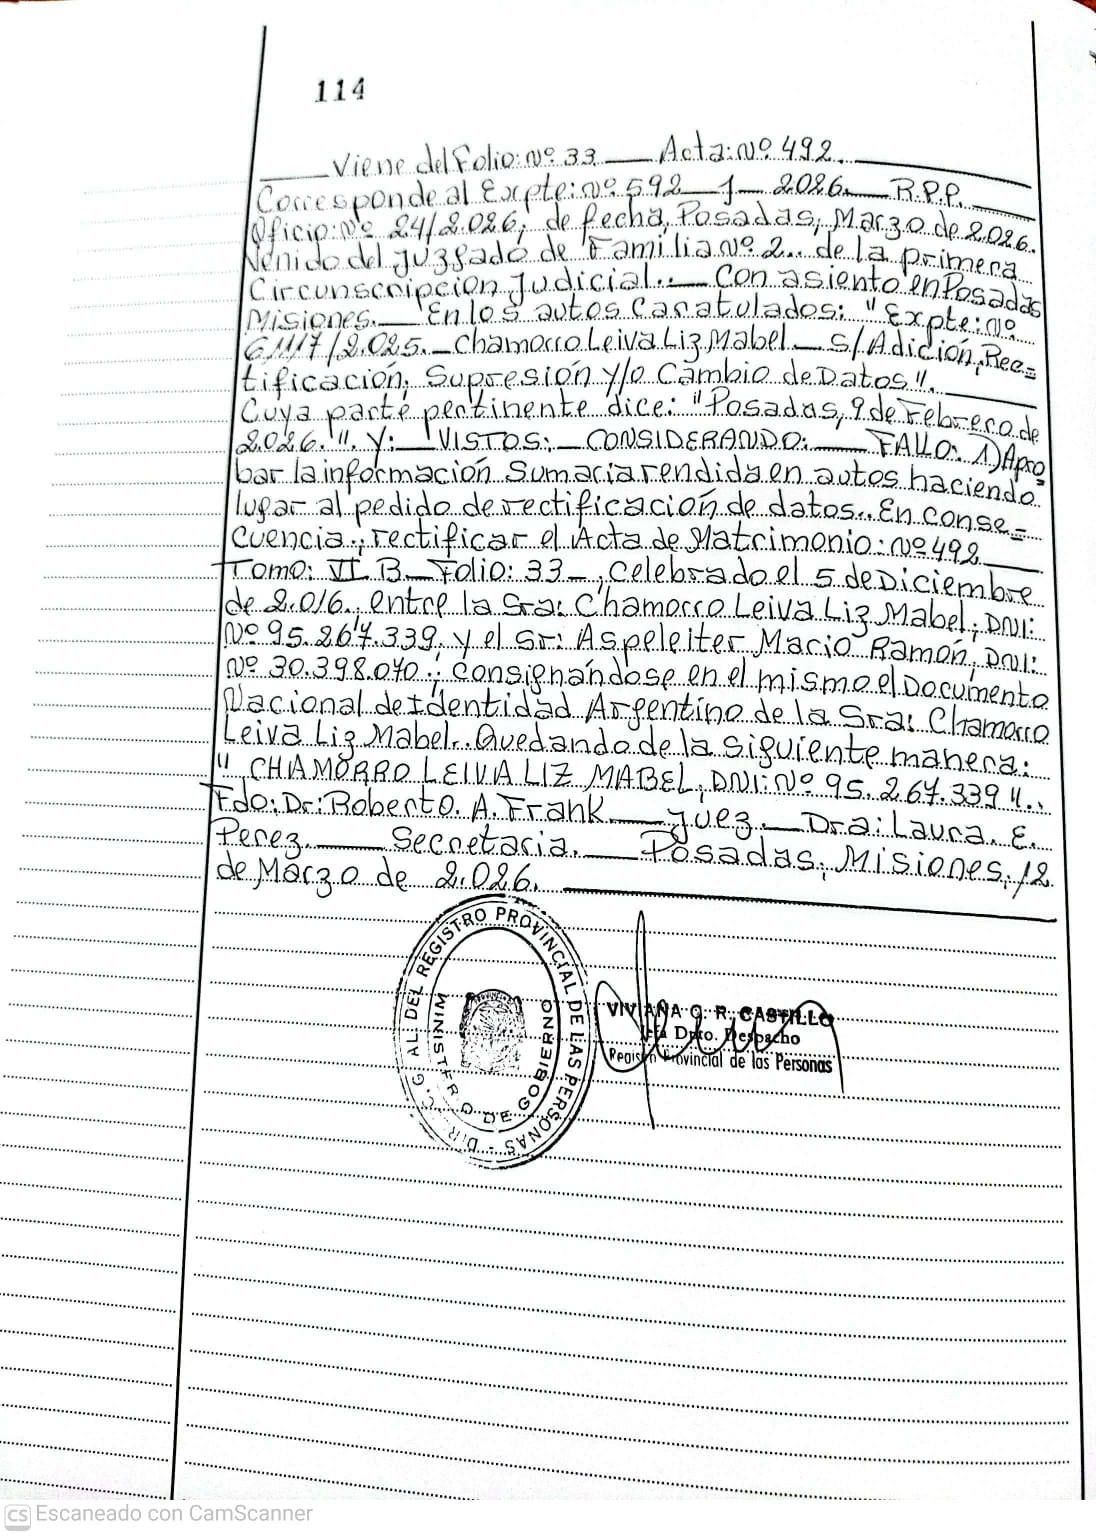 114
Viene del Folio: Nº 33 Acta: Nº 492.
Corresponde al Expte: Nº 592 - J - 2026. R.P.P.
Oficio: Nº 24/2.026, de fecha, Posadas, Marzo de 2.026.
Venido del Juzgado de Familia Nº 2.. de la primera
Circunscripción Judicial. Con asiento en Posadas
Misiones. En los autos Caratulados: "Expte: Nº
/2.025. Chamorro Leiva Liz Mabel S/ Adición, Rec=
tificación, Supresión y/o Cambio de Datos".
Cuya parte pertinente dice: "Posadas, 9 de Febrero de
2.026.". Y: VISTOS: CONSIDERANDO: FALLO: 1) Apro
bar la información Sumaria rendida en autos haciendo
lugar al pedido de rectificación de datos.. En Conse=
cuencia, rectificar el Acta de Matrimonio: Nº 492
Tomo: VI B Folio: 33 -, Celebrado el 5 de Diciembre
de 2.016., entre la Sra: Chamorro Leiva Liz Mabel, DNI:
Nº 95.267.339. y el Sr: Aspeleiter Mario Ramón, DNI:
Nº 30.398.070.; consignándose en el mismo el Documento
Nacional de Identidad Argentino de la Sra: Chamorro
Leiva Liz Mabel.. Quedando de la siguiente manera:
" CHAMORRO LEIVA LIZ MABEL, DNI: Nº 95.267.339 "..
Fdo: Dr: Roberto. A. Frank Juez. Dra: Laura. E.
Perez. Secretaria. Posadas, Misiones, 12
de Marzo de 2.026.
DIR. GRAL. DEL REGISTRO PROVINCIAL DE LAS PERSONAS
MINISTERIO DE GOBIERNO
VIVIANA G. R. CASTILLO
Jefa Dpto. Despacho
Registro Provincial de las Personas
CS Escaneado con CamScanner